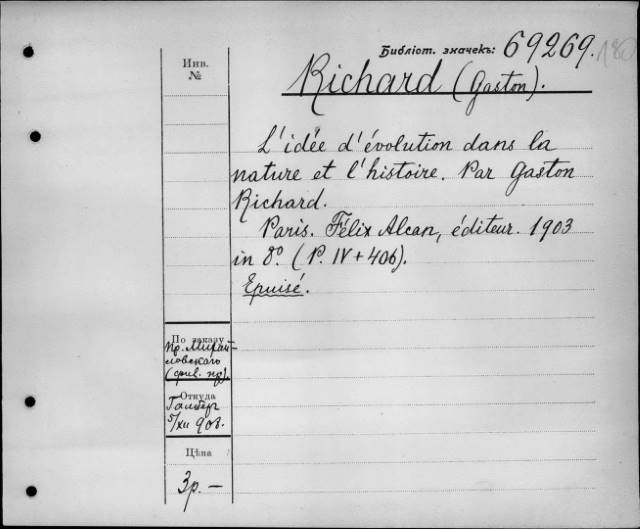 Библіот. значекъ: 69269.
Инв.
№
Richard (Gaston).
L'idée d'évolution dans la
nature et l'histoire. Par Gaston
Richard.
Paris. Félix Alcan, éditeur. 1903
in 8º. (P. IV + 406).
Epuisé.
По заказу
пр. Михай-
ловскаго
Откуда
5/XII 908.
Цѣна
3р. —